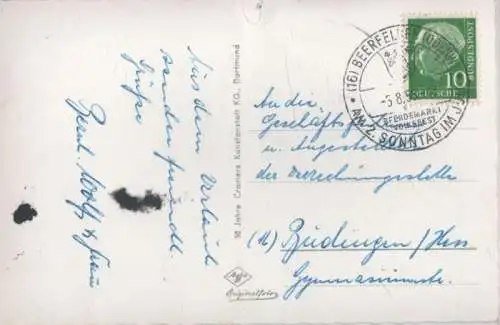 Aus dem Urlaub
senden freundl.
Grüße
Bernh. Wolf u. Frau
50 Jahre Cramers Kunstanstalt KG., Dortmund
Agfa
Originalfoto
(16) BEERFELDEN
-5.8.
PFERDEMARKT
VOLKSFEST
AM 2. SONNTAG IM J
10
DEUTSCHE
BUNDESPOST
An die
Geschäftsf
u. Angestellte
der Verrechnungsstelle
(16) Büdingen / Hess
Gymnasiumstr.